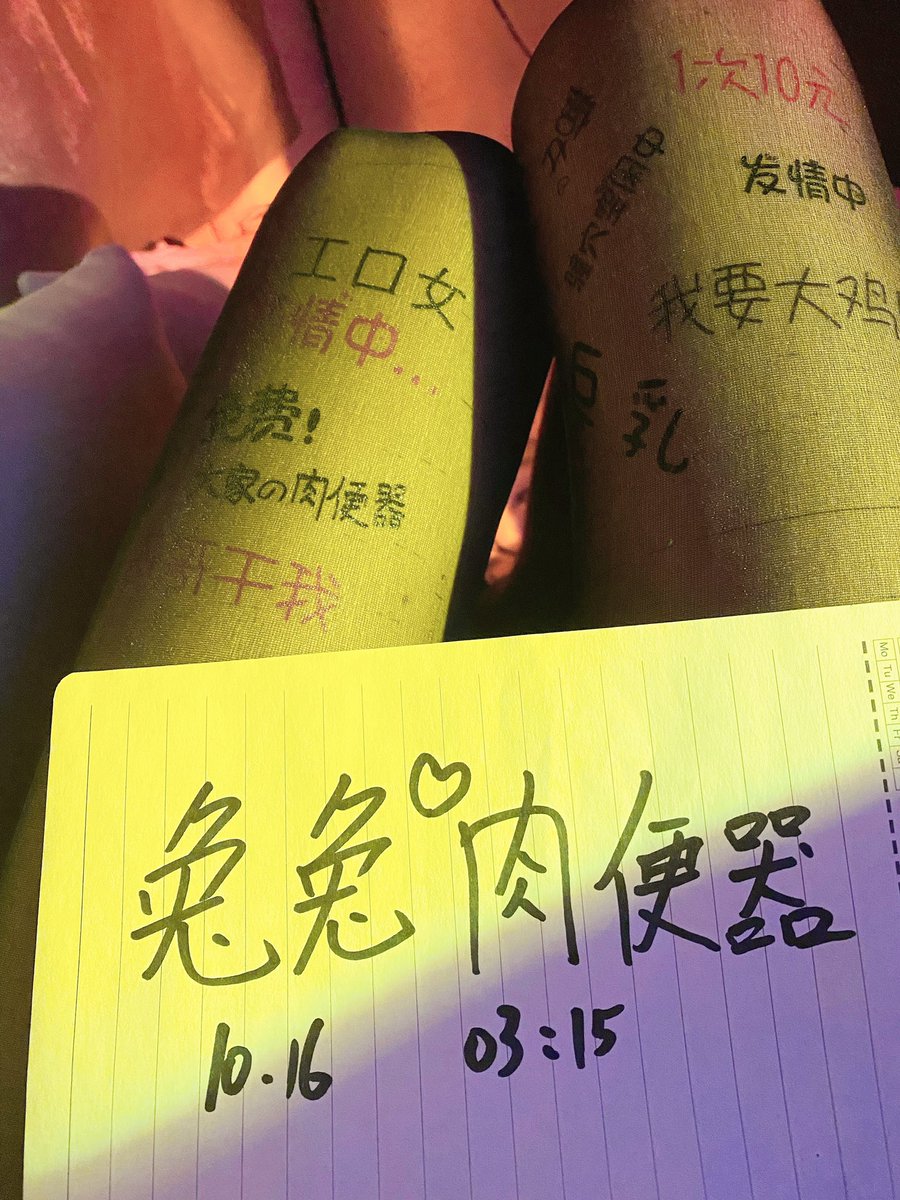 1次10元
发情中
エロ女
情中...
我要大鸡
免费!
乳
大家の肉便器
干我
Mo Tu We Th Fr
兔兔♡肉便器
10.16 03:15